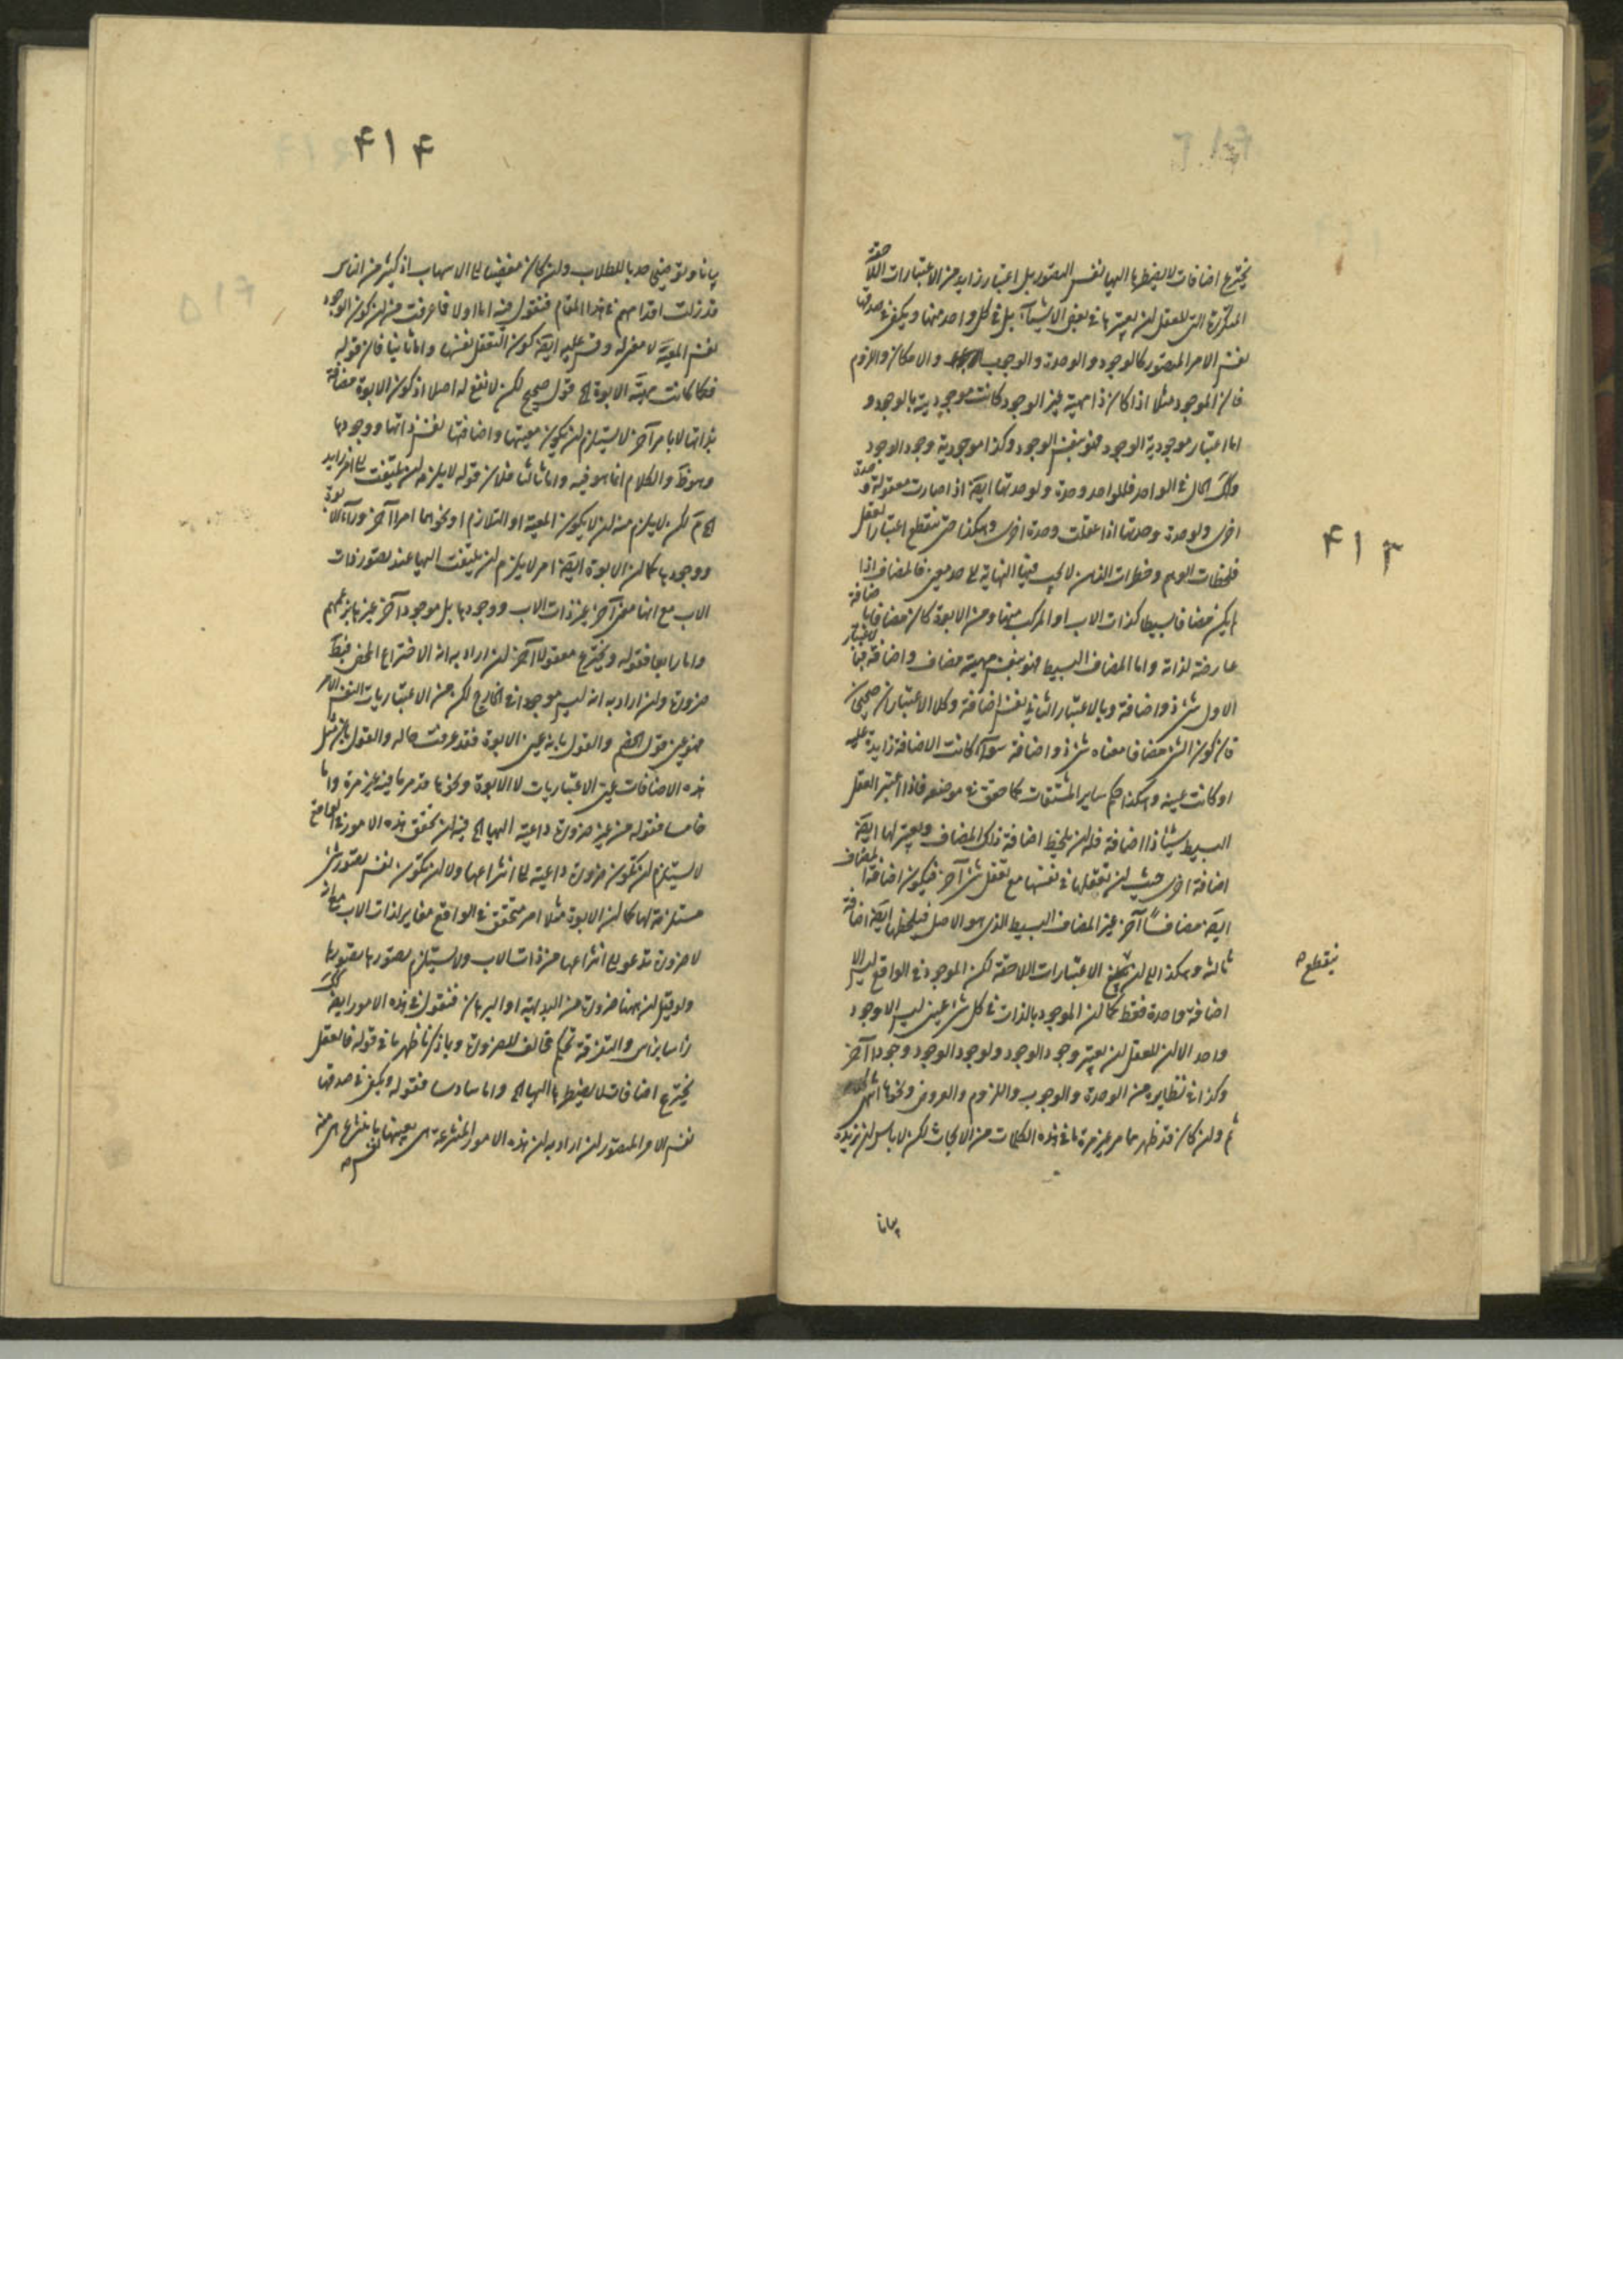 ۴۱۳
يخترع اضافات لا يضطره اليها نفس التصور بل اعتبار زايد من الاعتبارات اللاحقة
المتكررة التى للعقل ان يعتبرها فى بعض الاشيآء بل فى كل واحد منها ويكفى فى صدقها
نفس الامر المتصور كالوجود والوحدة والوجوب والامكان واللزوم
فان الموجود مثلا اذا كان ذا مهية غير الوجود كانت موجوديته بالوجود و
اما اعتبار موجودية الوجود فهو بنفس الوجود وكذا موجودية وجود الوجود
وكك الحال فى الواحد فللواحد وحدة ولوحدتها ايضا اذا صارت معقولة وحدة
اخرى ولوحدة وحدتها اذا عقلت وحدة اخرى وهكذا حتى ينقطع اعتبار العقل
فلحظات الوهم وخطرات الذهن لا يجب فيها النهاية الى حد معين فالمضاف اذا
لم يكن مضافا بسيطا كذات الاب او المركب منها ومن الابوة كان مضافا باضافة
عارضة لذاته واما المضاف البسيط فهو بنفس مهيته مضاف واضافة فبالاعتبار
الاول شئ ذو اضافة وبالاعتبار الثانى نفس اضافة وكلا الاعتبارين صحيحان
فان كون الشئ مضافا معناه شئ ذو اضافة سوآء كانت الاضافة زايدة عليه
او كانت عينه وهكذا حكم ساير المشتقات كما حقق فى موضعه فاذا اعتبر العقل
البسيط شيئا ذا اضافة فله ان يلحظ اضافة ذلك المضاف ويعتبر لها ايضا
اضافة اخرى حيث ان تعقلها فى نفسها مع تعقل شئ آخر فيكون اضافة المضاف
ايضا مضافاً آخر غير المضاف البسيط الذى هو الاصل فيلحظها ايضا اضافة
ثالثة وهكذا الى ان الاعتبارات اللاحقة لكن الموجود فى الواقع ليس الا
ينقطع
اضافة واحدة فقط كما ان الموجود بالذات فى كل شئ عينى ليس الا وجود
واحد الا ان للعقل ان يعتبر وجود الوجود ولوجود الوجود وجودا آخر
وكذا فى نظايره من الوحدة والوجوب واللزوم والعروض ونحوها انتهى
ثم وان كان قد ظهر مما مر غير مرة ما فى هذه الكلمات من الابحاث لكن لا باس ان نزيده
بيانا
۴۱۴
بيانا وتوضيحا للطلاب وان كان مفضيا الى الاسهاب اذ كثير من الناس
قد زلت اقدامهم فى هذا المقام فنقول فيه اما اولا فلما عرفت من ان كون الوجود
نفس المعية لا معنى له وقس عليه ايضا كون التعقل نفسها واما ثانيا فان قوله
فكما كانت مهية الابوة الخ قول صحيح لكن لا نفع له اصلا اذ كون الابوة مضافة
بذاتها لا بامر آخر لا يستلزم ان يكون معيتها واضافتها نفس ذاتها ووجودها
وهو ظ والكلام انما هو فيه واما ثالثا فلان قوله لا يلزمه ان يلتفت الى امر زايد
الخ م لكن لا يلزم منه ان لا يكون المعية او التلازم او نحوهما امرا آخر ورآء الابوة
ووجودها كما ان الابوة ايضا امر لا يلزم ان يلتفت اليها عند تصور ذات
الاب مع انها معنى آخر غير ذات الاب ووجودها بل موجود آخر غيرها بزعمهم
واما رابعا فقوله ويخترع معقولا آخر ان اراد به انه الاختراع المحض فبط
ضرورة وان اراد به انه ليس موجودا فى الخارج لكن من الاعتباريات النفس الامرية
فهو عين قول الخصم والقول بانه عين الابوة فقد عرفت حاله والقول بان مثل
هذه الاضافات عين الاعتباريات لا الابوة ونحوها قد مر ما فيه غير مرة واما
خامسا فقوله من غير ضرورة داعية اليها الخ فيه ان تحقق هذه الامور فى الواقع
لا يستلزم ان تكون ضرورة داعية الى انتزاعها ولا ان يكون نفس تصور شئ
مستلزمة لها كما ان الابوة مثلا امر متحقق فى الواقع مغاير لذات الاب مع انه
لا ضرورة تدعو الى انتزاعها من ذات الاب ولا يستلزم تصورها تصورها
ولو قيل ان ههنا ضرورة من البداهة او البرهان فنقول فى هذه الامور ايضا كك
راسا براس والتفرقة تحكم مخالف للضرورة وبما ذكرنا ظهر ما فى قوله فالعقل
يخترع اضافات لا يضطره اليها الخ واما سادسا فقوله ويكفى فى صدقها
نفس الامر المتصور ان اراد به ان هذه الامور المنتزعة هى بعينها ما ينتزع هى منه
نفس